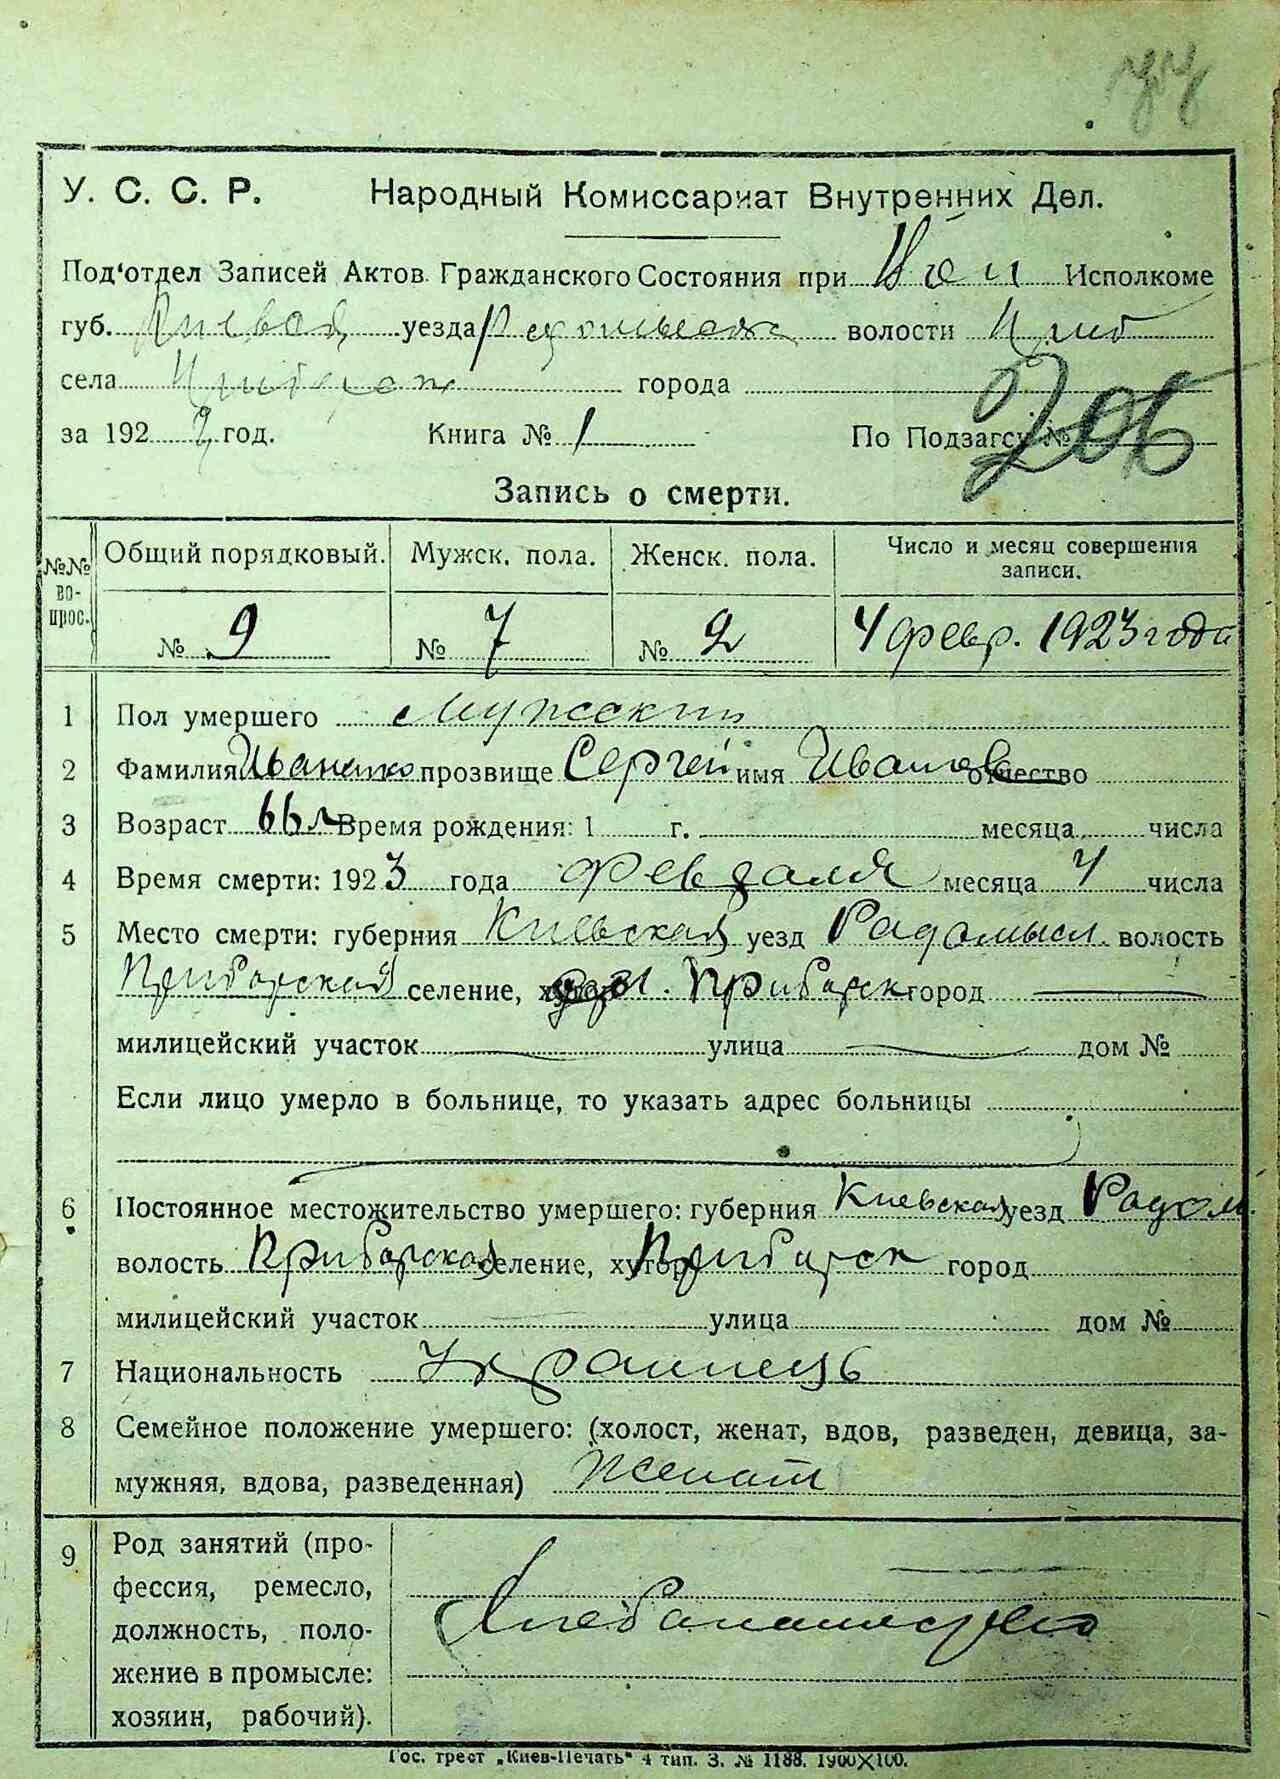 У. С. С. Р. Народный Комиссариат Внутренних Дел.
Под‘отдел Записей Актов Гражданского Состояния при Вол Исполкоме
губ. Киевск уезда Радомысльск волости Приб
села Прибирск города
за 192 год. Книга № 1 По Подзагсу № 206
Запись о смерти.
№№ во- прос. Общий порядковый. Мужск. пола. Женск. пола. Число и месяц совершения записи.
№ 9 № 7 № 2 4 февр. 1923 года
1 Пол умершего Мужский
2 Фамилия Иваненко прозвище Сергей имя Иванов отчество
3 Возраст 66 л Время рождения: 1 г. месяца числа
4 Время смерти: 1923 года Февраля месяца 4 числа
5 Место смерти: губерния Киевская уезд Радомысл. волость
Приборская селение, хутор Приборск город
милицейский участок улица дом №
Если лицо умерло в больнице, то указать адрес больницы
6 Постоянное местожительство умершего: губерния Киевская уезд Радом.
волость Приборская селение, хутор Прибирск город
милицейский участок улица дом №
7 Национальность Украинець
8 Семейное положение умершего: (холост, женат, вдов, разведен, девица, за-
мужняя, вдова, разведенная) Женат
9 Род занятий (про-
фессия, ремесло,
должность, поло-
жение в промысле:
хозяин, рабочий).
Гос. трест „Киев-Печать“ 4 тип. З. № 1188. 1900×100.